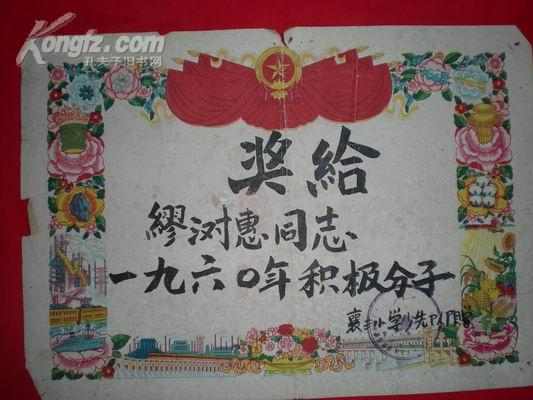 Kongfz.com
孔夫子旧书网
奖给
缪澍惠同志
一九六〇年积极分子
襄丰小学少先队